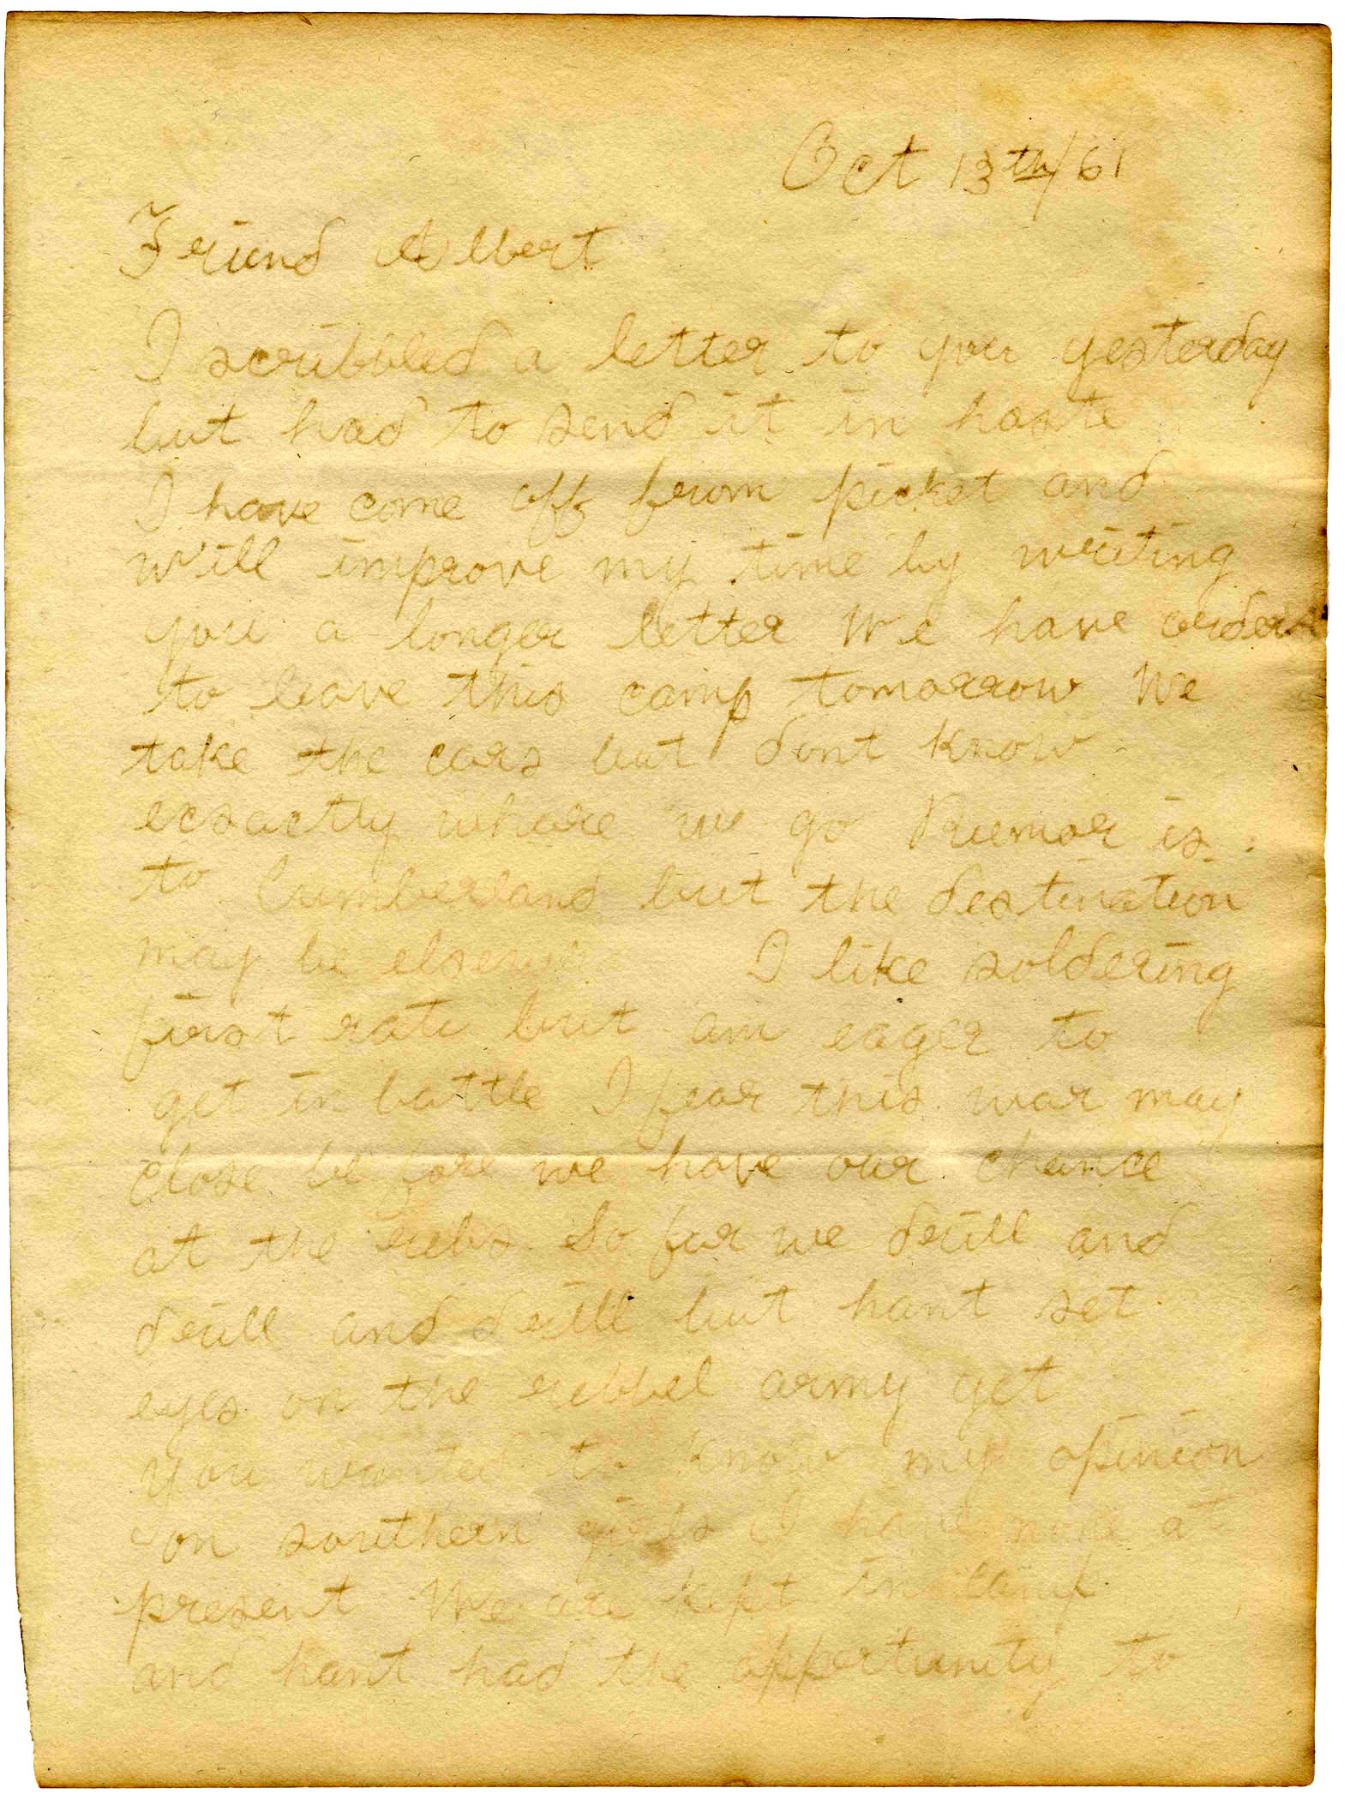 Oct 13th/61
Friend Albert
I scribbled a letter to you yesterday
but had to send it in haste
I have come off from picket and
will improve my time by writing
you a longer letter We have orders
to leave this camp tomorrow We
take the cars but dont know
ecsactly whare we go Rumor is
to Cumberland but the destination
may be I like soldering
first rate but am eager to
get in battle I fear this war may
close be fore we have our chance
at the rebs So far we drill and
drill and drill but hant set
eyes on the rebbel army yet
You wanted to know my opinion
on southern girls I have none at
present We are kept in camp
and hant had the opportunity to